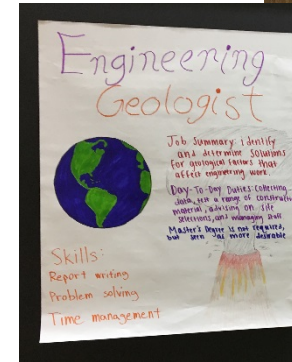 Engineering
Geologist
Job Summary: Identify
and determine solutions
for geological factors that
affect engineering work.
Day-To-Day Duties: collecting
data, test a range of constructi
material, advising on site
selections, and managing staff
Master's Degree is not required,
but seen as more desirable
Skills:
Report writing
Problem solving
Time management